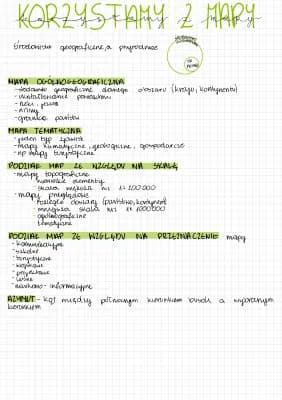 KORZYSTAMY Z MAPY
Środowisko geograficzne, a przyrodnicze
MAPA OGÓLNOGEOGRAFICZNA
- środowisko geograficzne danego obszaru (kraju, kontynentu)
- ukształtowanie powierzchni
- rzeki, jeziora
- krainy
- granice państw
MAPA TEMATYCZNA
- jeden typ zjawisk
- mapy klimatyczne, geologiczne, gospodarcze
- np mapy turystyczne
PODZIAŁ MAP ZE WZGLĘDU NA SKALĘ
- mapy topograficzne
elementy
skala większa niż 1:100 000
- mapy przeglądowe
rozległe obszary (państwo, kontynent)
mniejsza skala niż 1:1000000
ogólnogeograficzne
tematyczne
PODZIAŁ MAP ZE WZGLĘDU NA PRZEZNACZENIE mapy
- komunikacyjne
- szkolne
- turystyczne
- wojskowe
- projektowe
- leśne
- naukowo-informacyjne
AZYMUT - kąt między północnym kierunkiem busoli a wybranym
kierunkiem